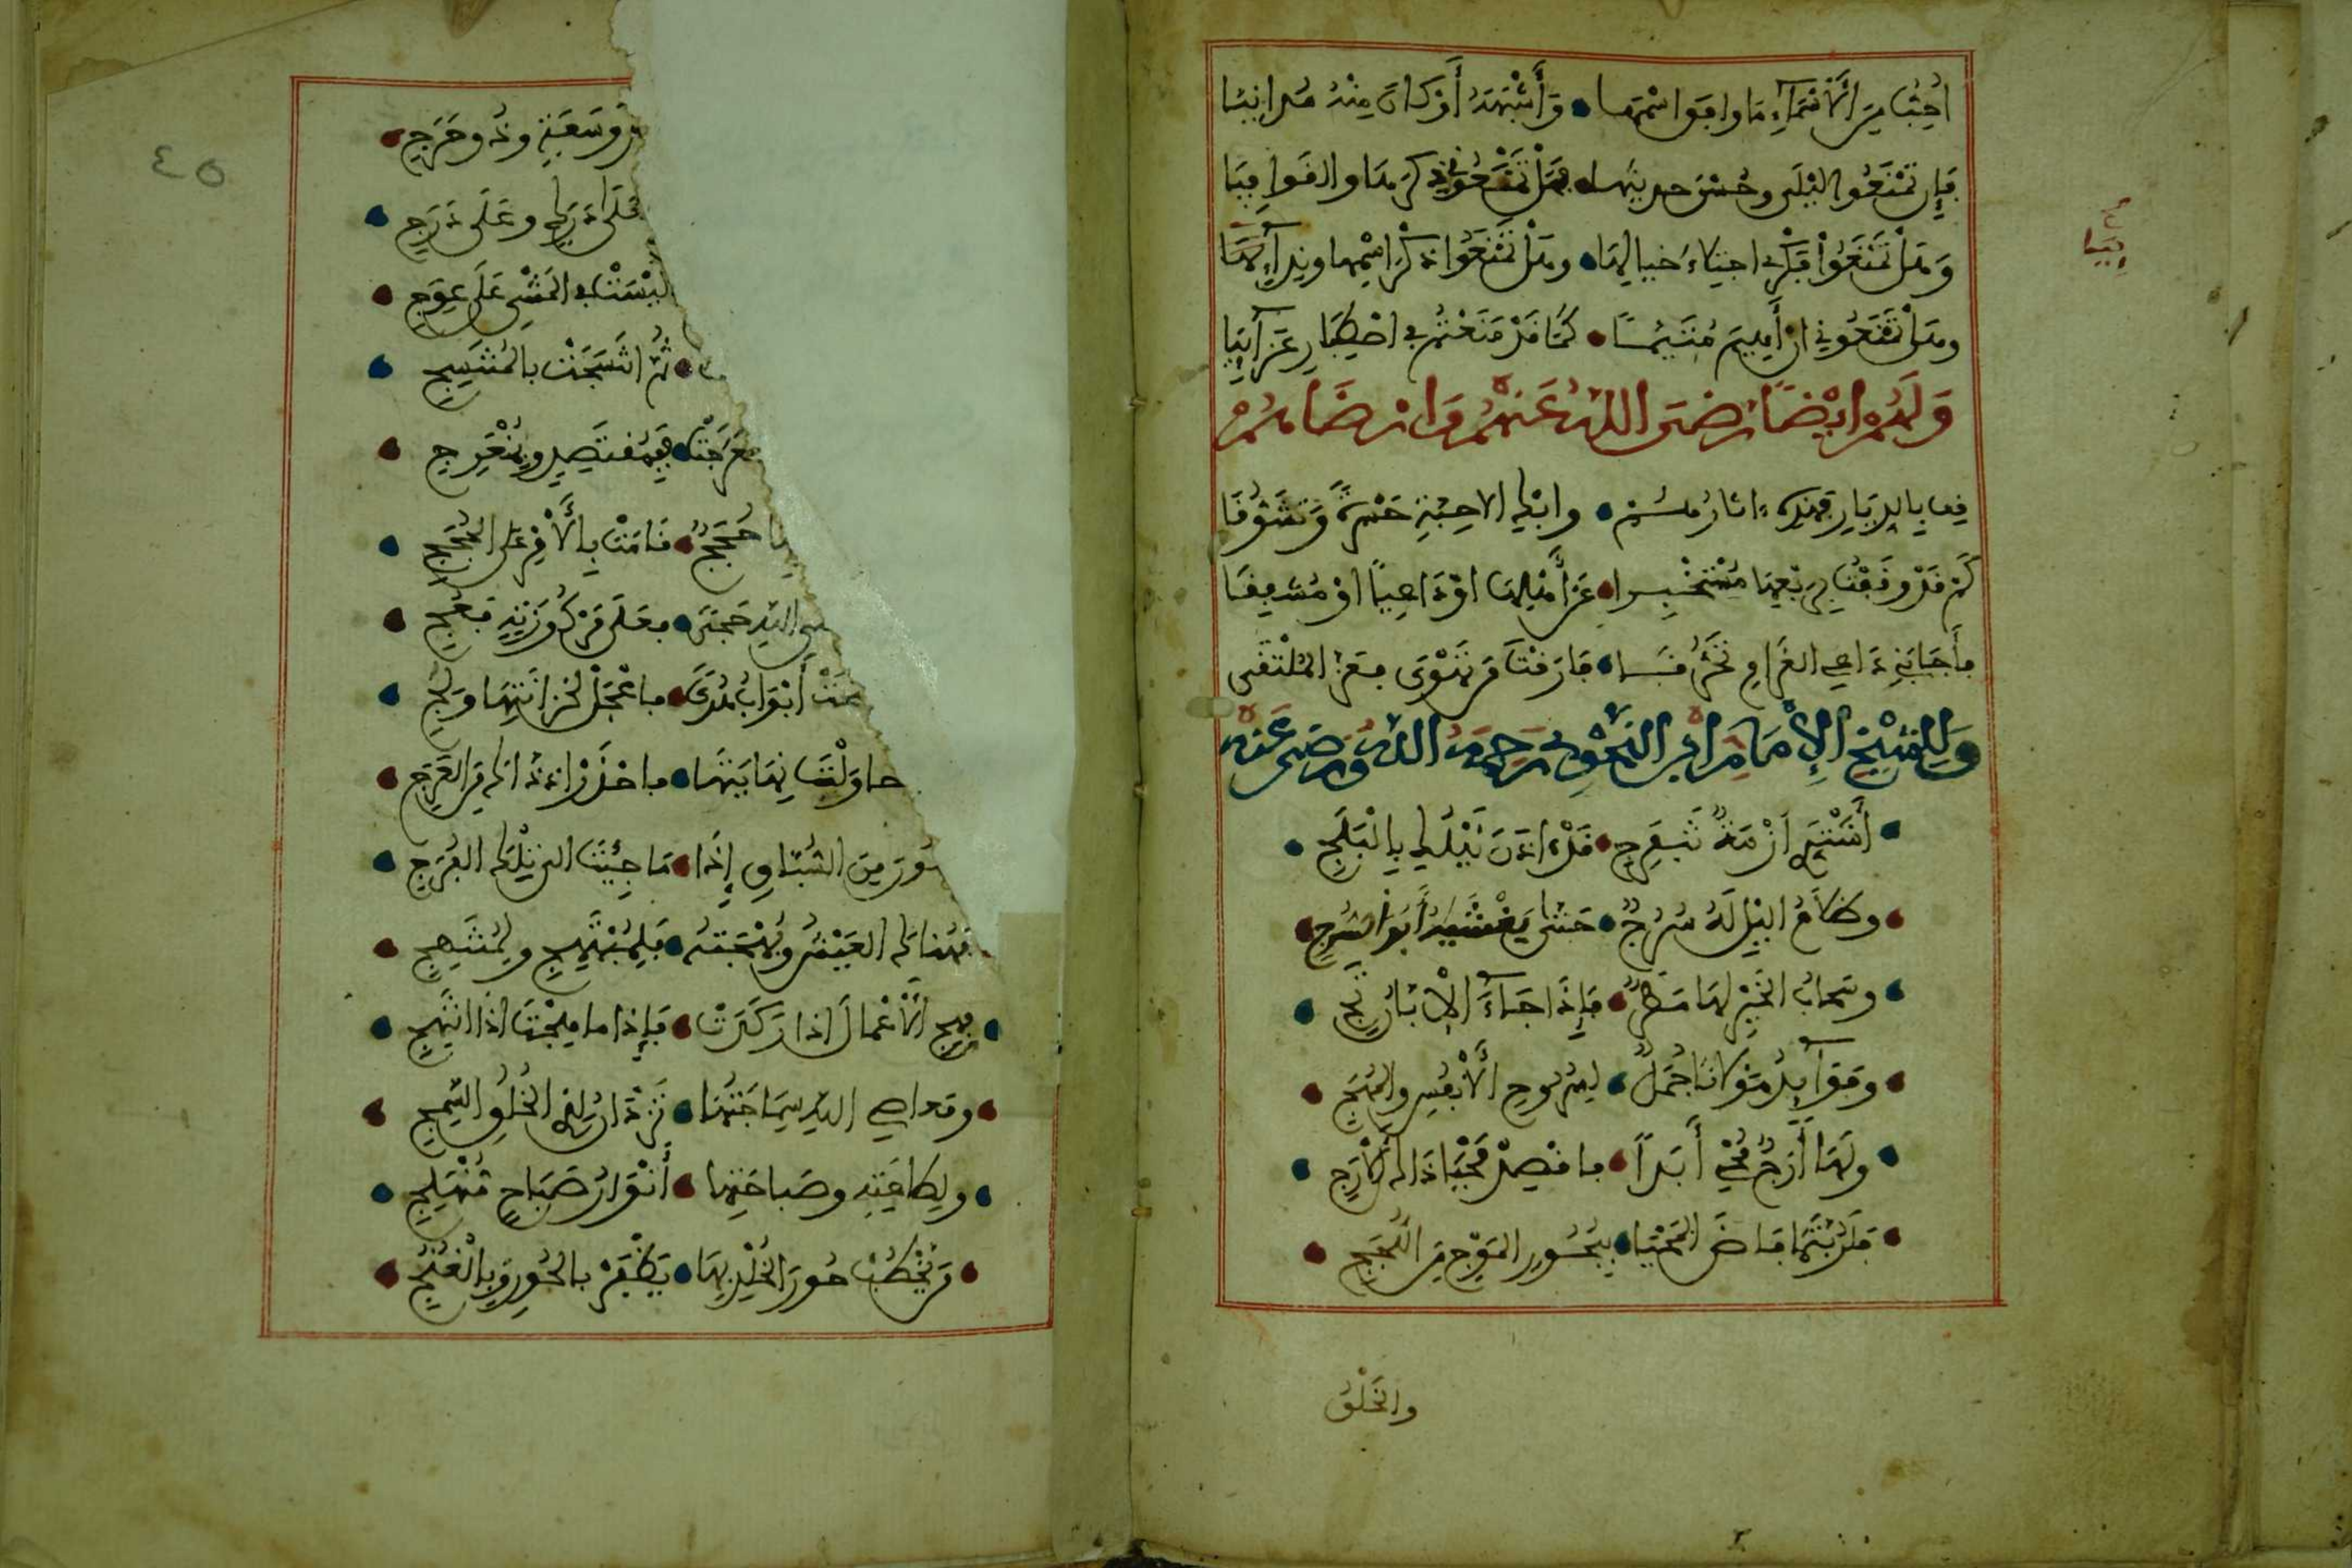 أُحِبُّ مِنَ الْأَسْمَاءِ مَا وَافَقَ اسْمَهَا • وَأَشْبَهَهُ أَوْ كَانَ مِنْهُ مُدَانِيَا
فَإِن تَمْنَعُوا لَيْلَى وَحُسْنَ حَدِيثِهَا • فَلَنْ تَمْنَعُونِي ذِكْرَهَا وَالْقَوَافِيَا
وَهَلْ تَمْنَعُوا فِكْرِي اجْتِلَاءَ خَيَالِهَا • وَهَلْ تَمْنَعُوا ذِكْرَ اسْمِهَا وَنِدَائِهَا
وَهَلْ تَمْنَعُونِي أَنْ أَهِيمَ مُتَيَّمًا • كَمَا قَدْ مَنَعْتُمْ فِي اصْطِبَارِ عَزَائِيَا
وَلَهُمْ أَيْضًا رَضِيَ اللَّهُ عَنْهُمْ وَأَرْضَاهُمْ
قِفْ بِالدِّيَارِ فَهَذِهِ ءَاثَارُهُمْ • وَابْكِ الْأَحِبَّةَ حَسْرَةً وَتَشَوُّقَا
كَمْ قَدْ وَقَفْتُ بِرَبْعِهَا مُسْتَخْبِرًا • عَنْ أَهْلِهَا أَوْ دَاعِيًا أَوْ مُشْفِقَا
فَأَجَابَنِي دَاعِي الْغَرَامِ تَحَرُّقًا • فَارَقْتَ مَنْ تَهْوَى فَعَزَّ الْمُلْتَقَى
وَلِلشَّيْخِ الْإِمَامِ ابْنِ النَّحْوِيِّ رَحِمَهُ اللَّهُ وَرَضِيَ عَنْهُ
أشْتَدِّي أَزْمَةُ تَنفَرِجِ • قَدْ ءَاذَنَ لَيْلُكِ بِالْبَلَجِ
وَظَلَامُ الَّيْلِ لَهُ سُرُجٌ • حَتَّى يَغْشَاهُ أَبُو السُّرُجِ
وَسَحَابُ الْخَيْرِ لَهَا مَطَرٌ • فَإِذَا جَاءَ الْإِبَّانُ تَجِ
وَفَوَائِدُ مَوْلَانَا جُمَلٌ • لِسُرُوحِ الْأَنْفُسِ وَالْمُهَجِ
وَلَهَا أَرَجٌ مُحْيٍ أَبَدًا • فَاقْصِدْ مَحْيَا ذَاكَ الْأَرَجِ
فَلَرُبَّتَمَا فَاضَ الْمَحْيَا • بِبُحُورِ الْمَوْجِ مِنَ اللُّجَجِ
وَالْخَلْقُ
٤٥
سَعَةٍ وَذُو حَرَجِ
فَعَلَى دَرَكٍ وَعَلَى دَرَجِ
لَيْسَتْ فِي الْمَشْيِ عَلَى عِوَجِ
ثُمَّ انتَسَجَتْ بِالْمُنْتَسِجِ
عَرَجَتْ • فَبِمُقْتَصِدٍ وَبِمُنْعَرِجِ
حُجَجٌ • قَامَتْ بِالْأَمْرِ عَلَى الْحُجَجِ
اللَّهِ حِجًى • فَعَلَى مَرْكُوزَتِهِ فَعُجِ
أَبْوَابُ هُدًى • فَاعْجَلْ لِخَزَائِنِهَا وَلِجِ
حَاوَلْتَ نِهَايَتَهَا • فَاحْذَرْ إِذْ ذَاكَ مِنَ الْعَرَجِ
مِنَ السُّبَّاقِ إِذَا • مَا جِئْتَ إِلَى تِلْكَ الْفُرَجِ
فَهُنَاكَ الْعَيْشُ وَبَهْجَتُهُ • فَلِمُبْتَهِجٍ وَلِمُنْتَهِجِ
فَهِجِ الْأَعْمَالَ إِذَا رَكَدَتْ • فَإِذَا مَا هِجْتَ إِذًا تَهِجِ
وَمَعَاصِي اللَّهِ سَمَاجَتُهَا • تَزْدَانُ لِذِي الْخُلُقِ السَّمِجِ
وَلِطَاعَتِهِ وَصَبَاحَتِهَا • أَنْوَارُ صَبَاحٍ مُنْبَلِجِ
مَنْ يَخْطُبْ حُورَ الْخُلْدِ بِهَا • يَظْفَرْ بِالْحُورِ وَبِالْغُنُجِ